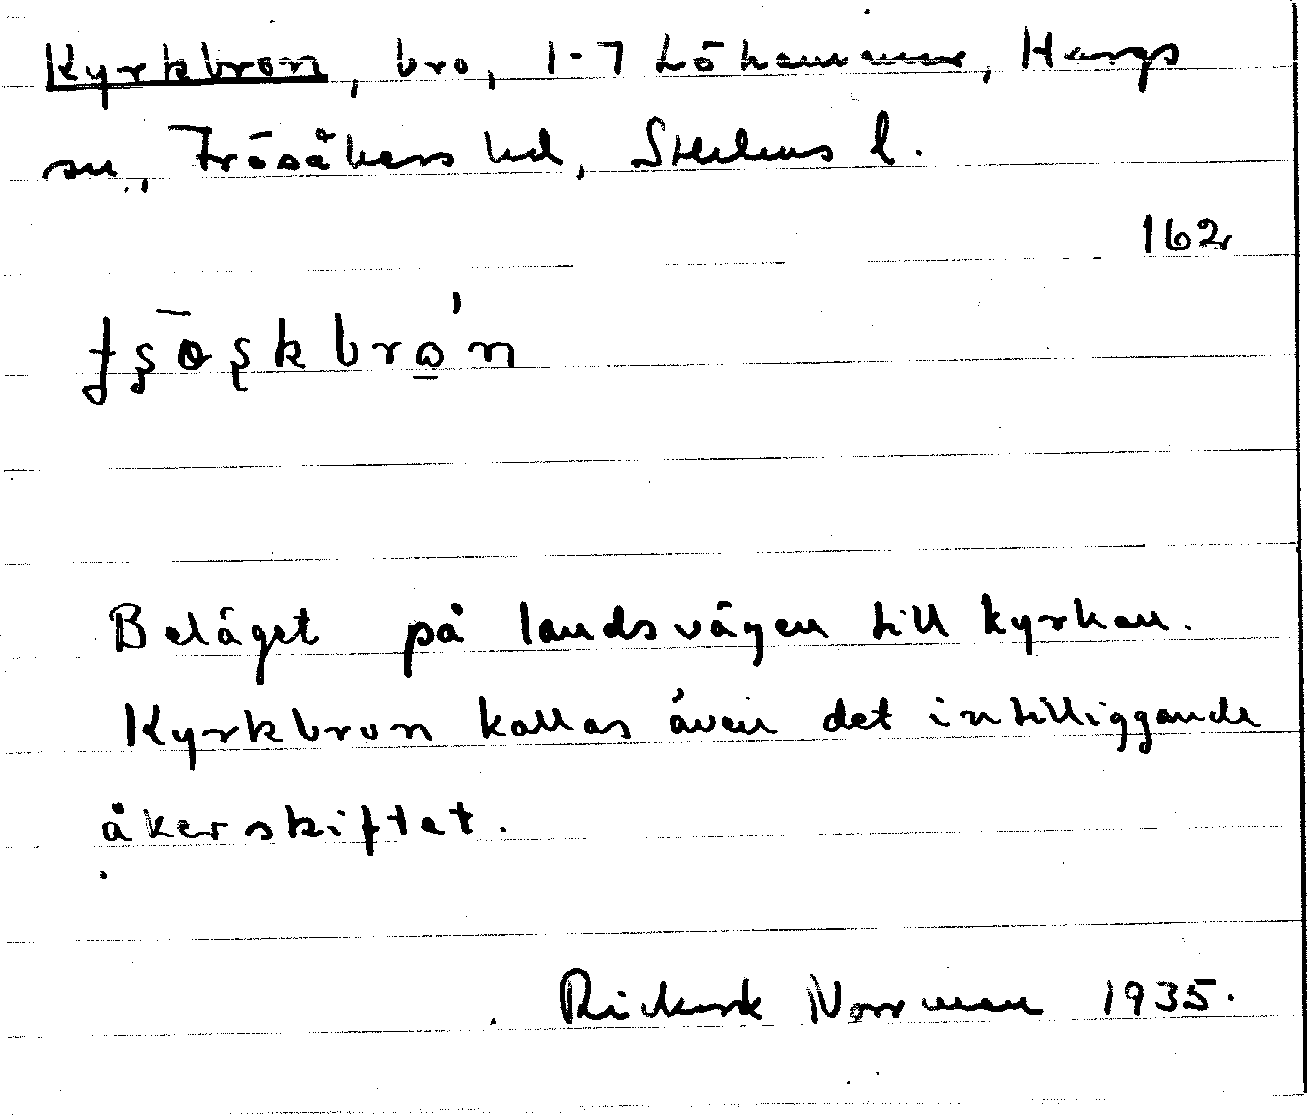 Kyrkbron, bro, 1-7 Löhammar, Hargs
sn., Frösåkers hd, Sthlms l.
162
Beläget på landsvägen till kyrkan.
Kyrkbron kallas även det intilliggande
åkerskiftet.
Rickard Norrman 1935.